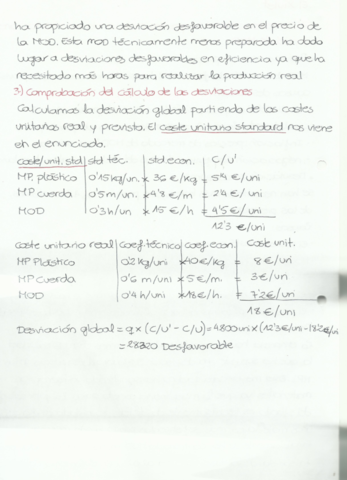 ha propiciado una desviación desfavorable en el precio de
la MOD. Esta MOD técnicamente menos preparada ha dado
lugar a desviaciones desfavorables en eficiencia ya que ha
necesitado más horas para realizar la producción real
3) Comprobación del cálculo de las desviaciones
Calculamos la desviación global partiendo de los costes
unitarios real y prevista. El coste unitario standard nos viene
en el enunciado.
coste/unit. std | std téc. | std.econ. | C/U'
MP. plástico | 0'15kg/un. × 36 €/kg = 5'4 €/uni
MP cuerda | 0'5m/un. × 4'8 €/m = 2'4 €/uni
MOD | 0'3h/un × 15 €/h = 4'5€/uni
12'3 €/uni
Coste unitario real | coef.técnico | coef.econ. | Coste unit.
MP Plástico | 0'2 kg/uni × 40€/kg = 8 €/uni
MP cuerda | 0'6 m/uni × 5 €/m. = 3€/un
MOD | 0'4 h/uni × 18€/h. = 7'2€/un
18'€/uni
Desviación global = q × (C/U' - C/U) = 4.800uni × (12'3€/uni - 18'2€/uni
= 28320 Desfavorable